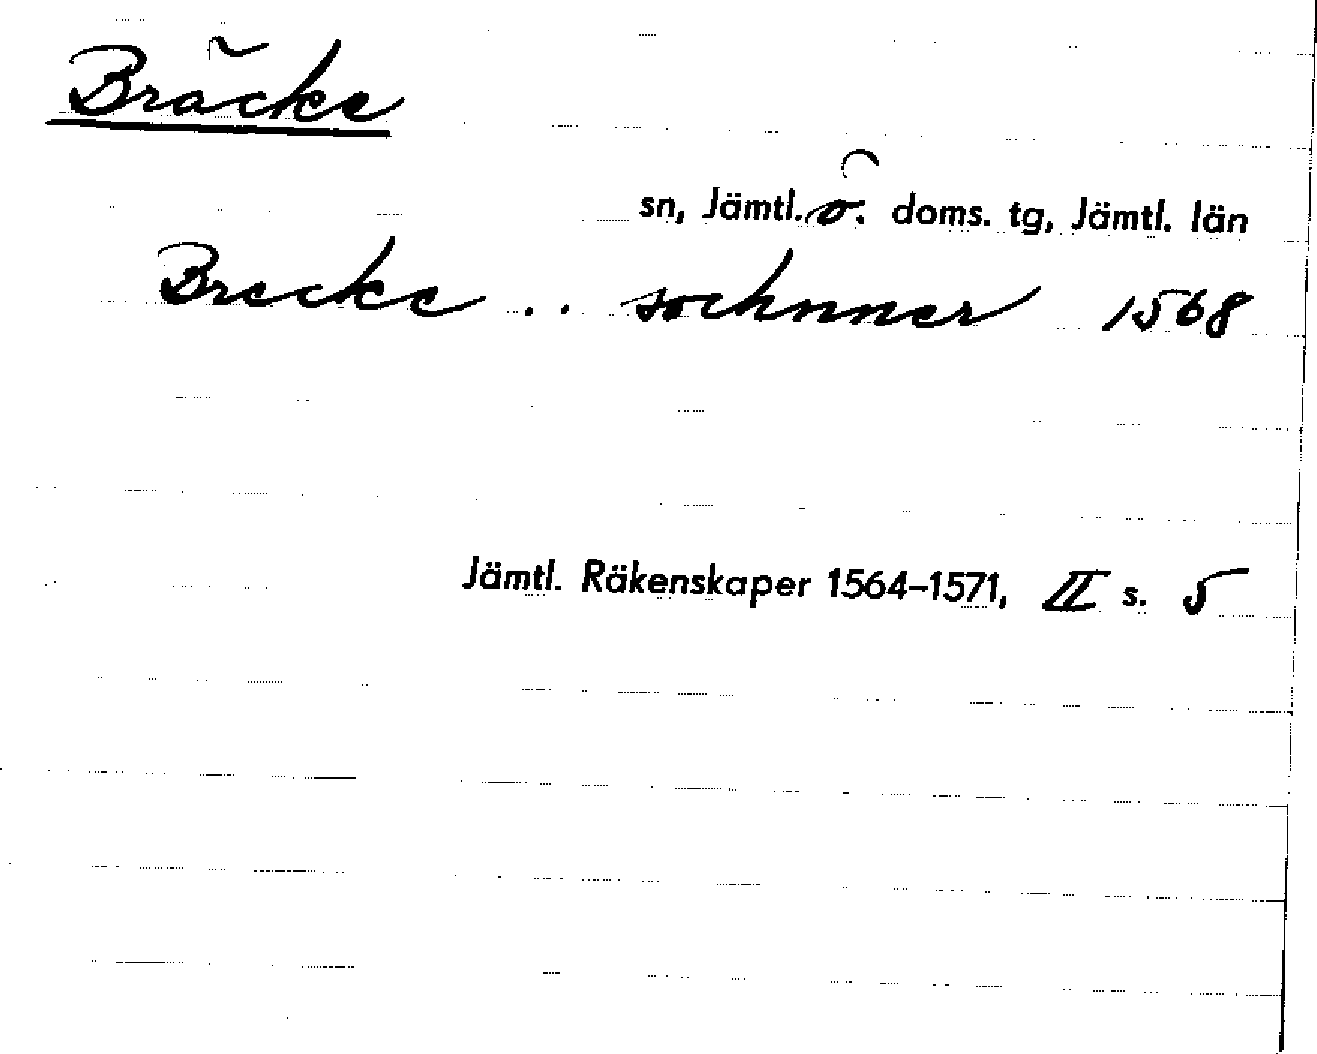 Bräcke
sn, Jämtl. ö. doms. tg, Jämtl. län
Brecke .. sochnner 1568
Jämtl. Räkenskaper 1564–1571, II s. 5